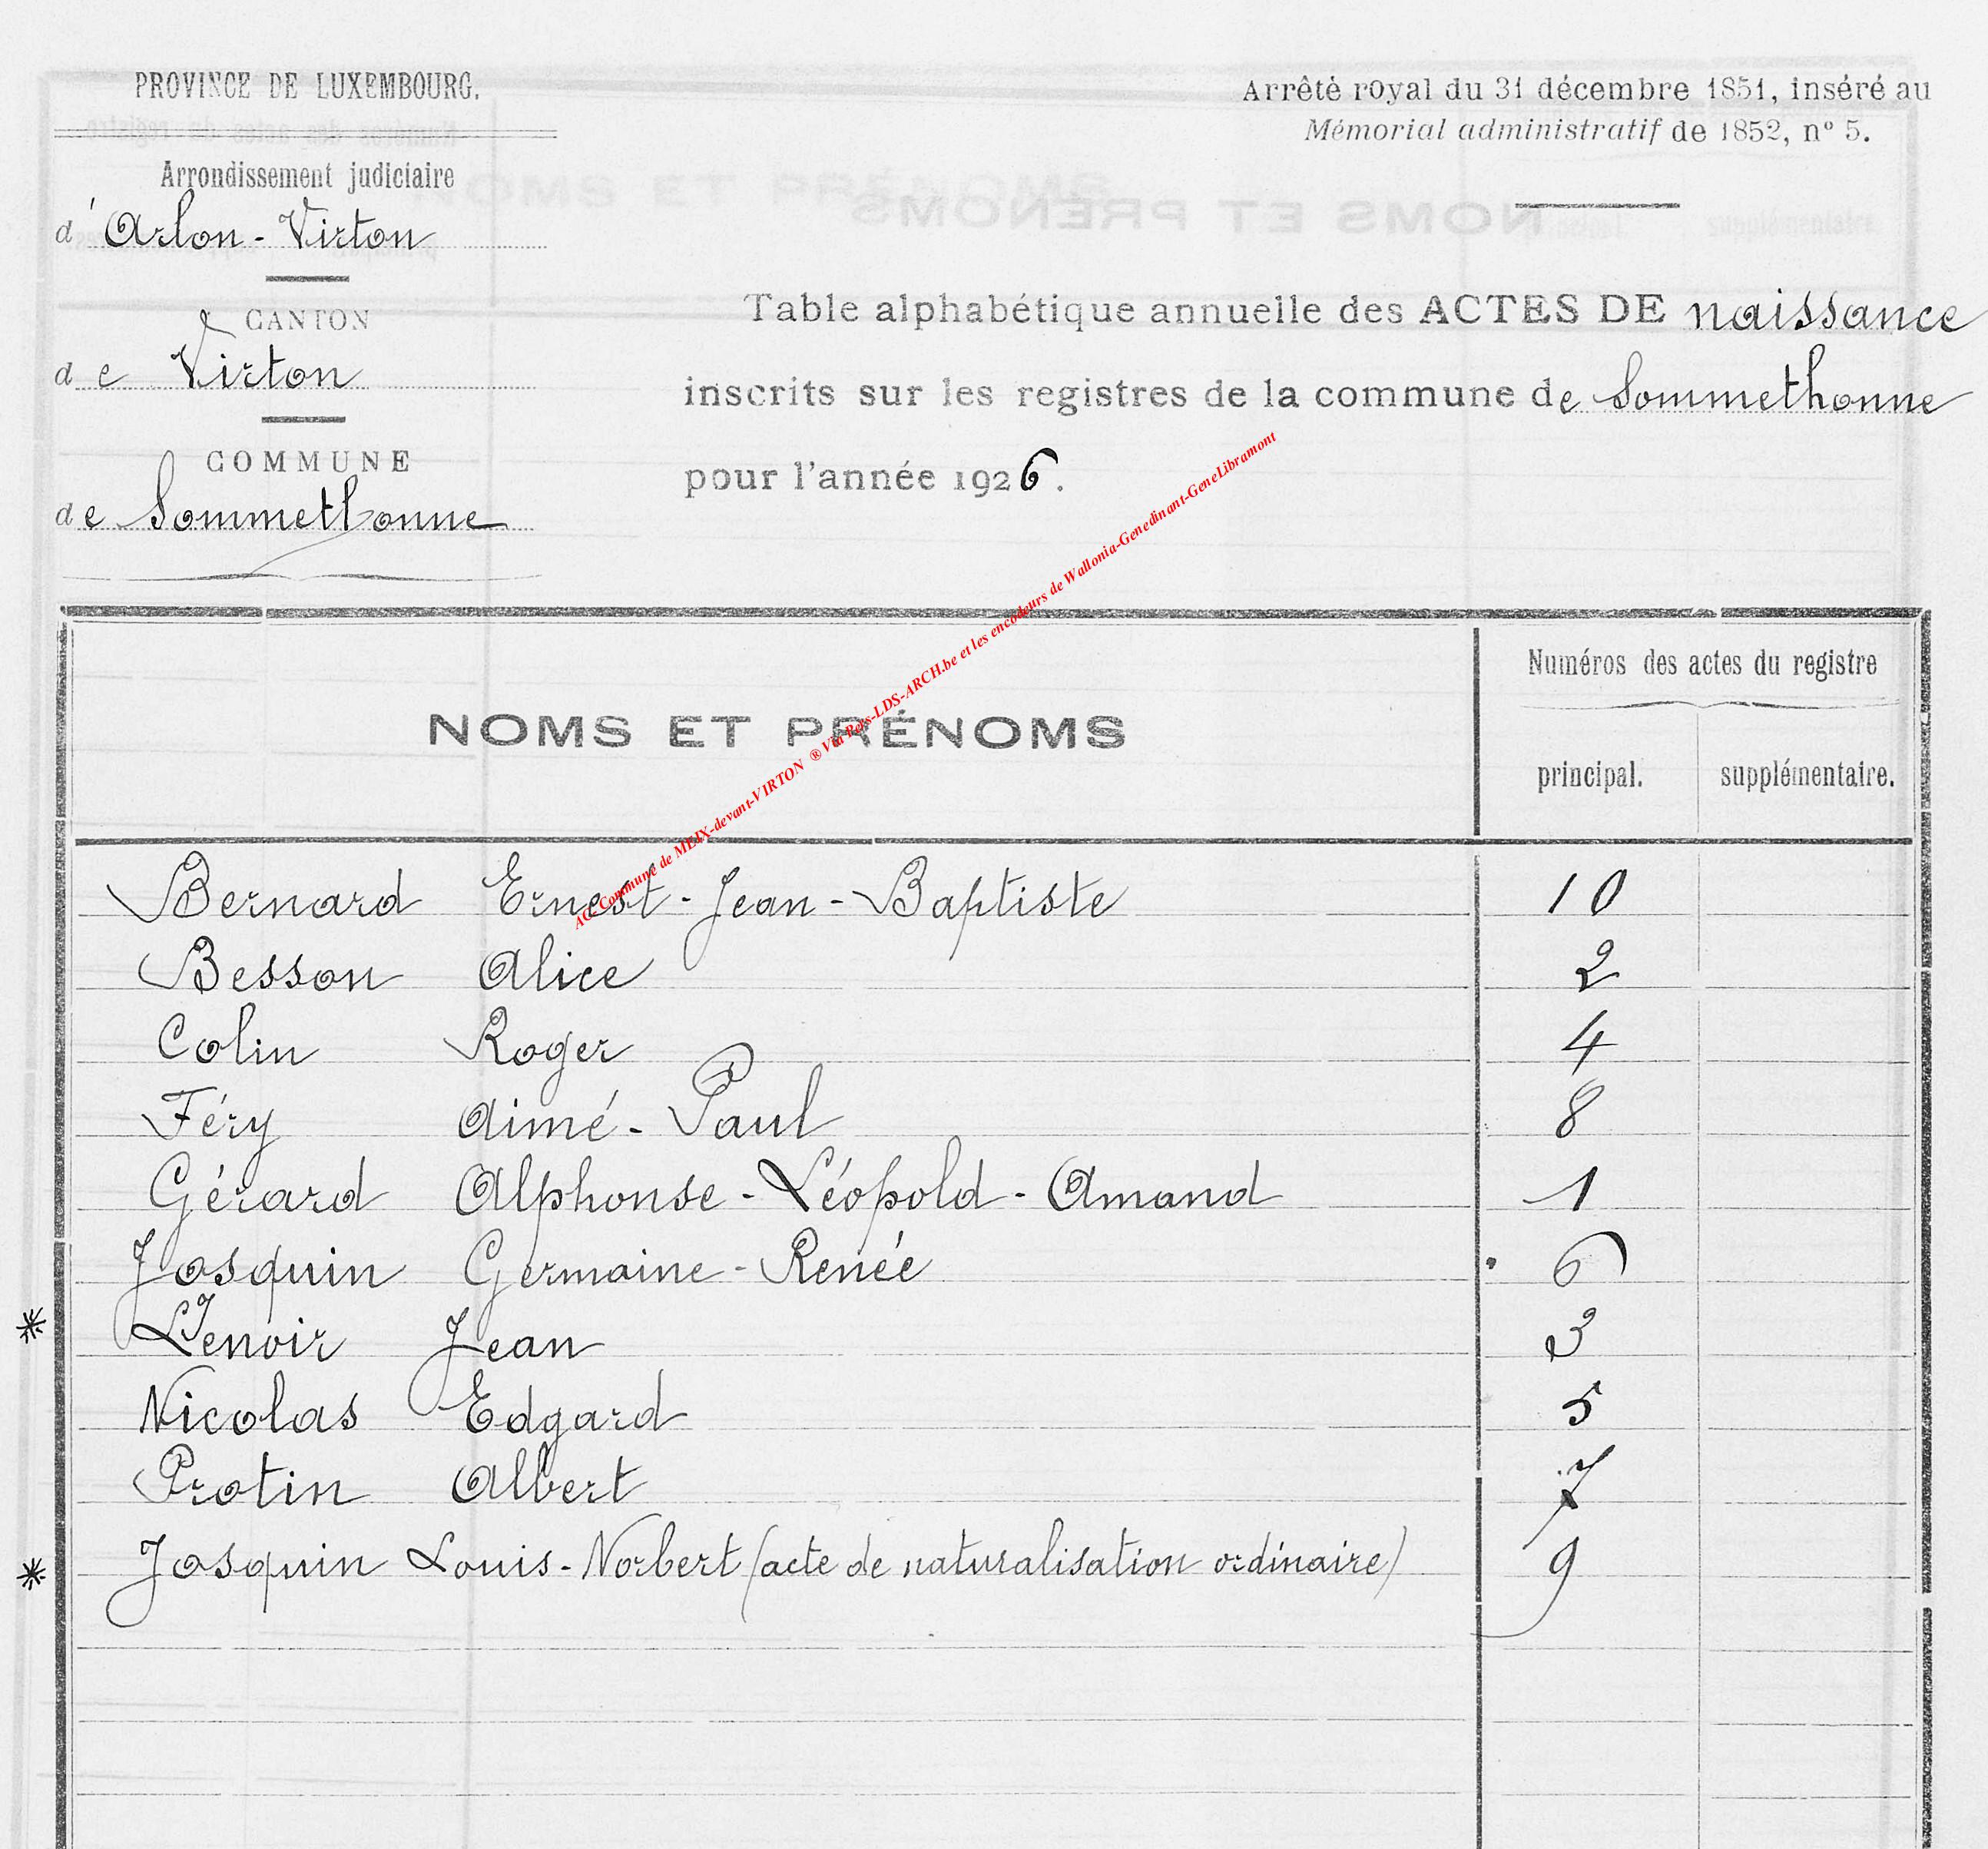 PROVINCE DE LUXEMBOURG.
Arrondissement judiciaire
d'Arlon-Virton
CANTON
de Virton
COMMUNE
de Sommethonne
Arrêté royal du 31 décembre 1851, inséré au
Mémorial administratif de 1852, n° 5.
Table alphabétique annuelle des ACTES DE naissance
inscrits sur les registres de la commune de Sommethonne
pour l'année 1926.
AC-Commune de MEIX-devant-VIRTON ® Via Rers-LDS-ARCH.be et les encodeurs de Wallonia-Genedinant-GeneLibramont
NOMS ET PRÉNOMS
Numéros des actes du registre
principal. supplémentaire.
Bernard Ernest-Jean-Baptiste 10
Besson Alice 2
Colin Roger 4
Féry Aimé-Paul 8
Gérard Alphonse-Léopold-Amand 1
Josquin Germaine-Renée 6
* Lenoir Jean 3
Nicolas Edgard 5
Protin Albert 7
* Josquin Louis-Norbert (acte de naturalisation ordinaire) 9